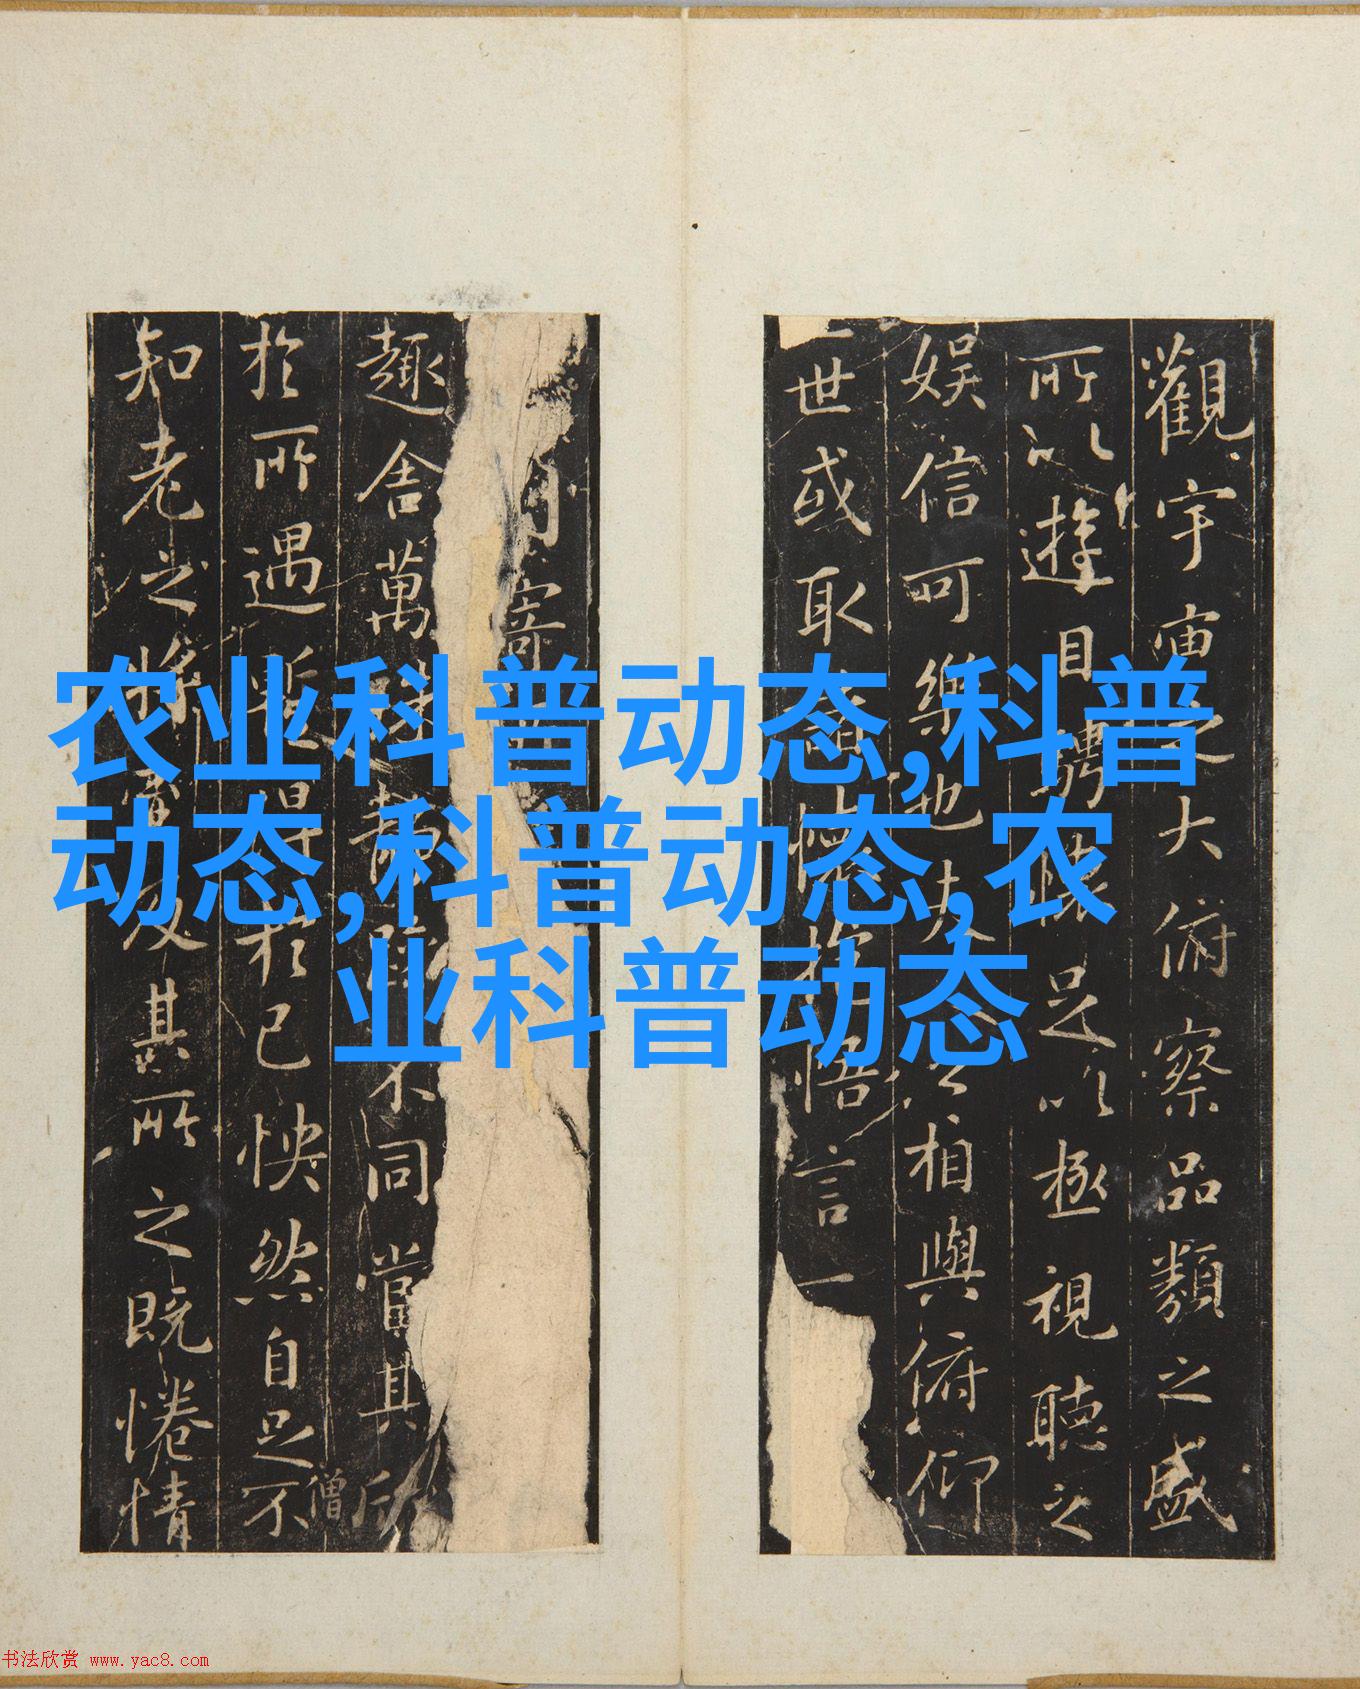 农业科普动态,科普
动态,科普动态,农
业科普动态
觀宇宙之大俯察品類之盛
所以遊目騁懷足以極視聽之
娛信可樂也夫之相與俯仰
一世或取諸懷抱悟言一
寄
趣舍萬殊靜不同當其欣
僧
於所遇蹔得於己怏然自足不
知老之將及其所之既惓情
书法欣赏 www.yac8.com